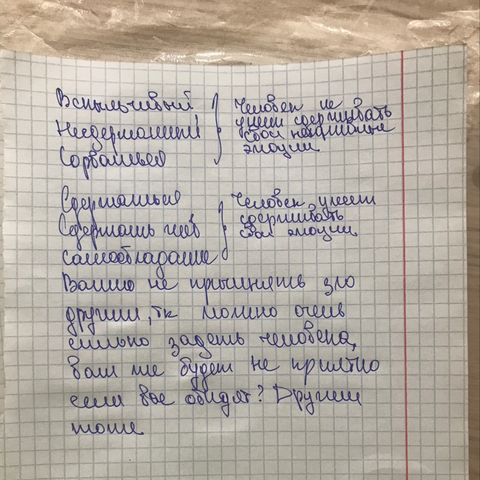 Вспыльчивый } Человек не
умеет сдерживать
Несдержанный свои негативные
эмоции
Сорваться
Сдержанься } Человек умеет
сдерживать
Сдержать гнев свои эмоции
самообладание
Важно не причинять зло
другим, тк можно очень
сильно задеть человека,
вам же будет не приятно
если вас обидят? Другим
тоже